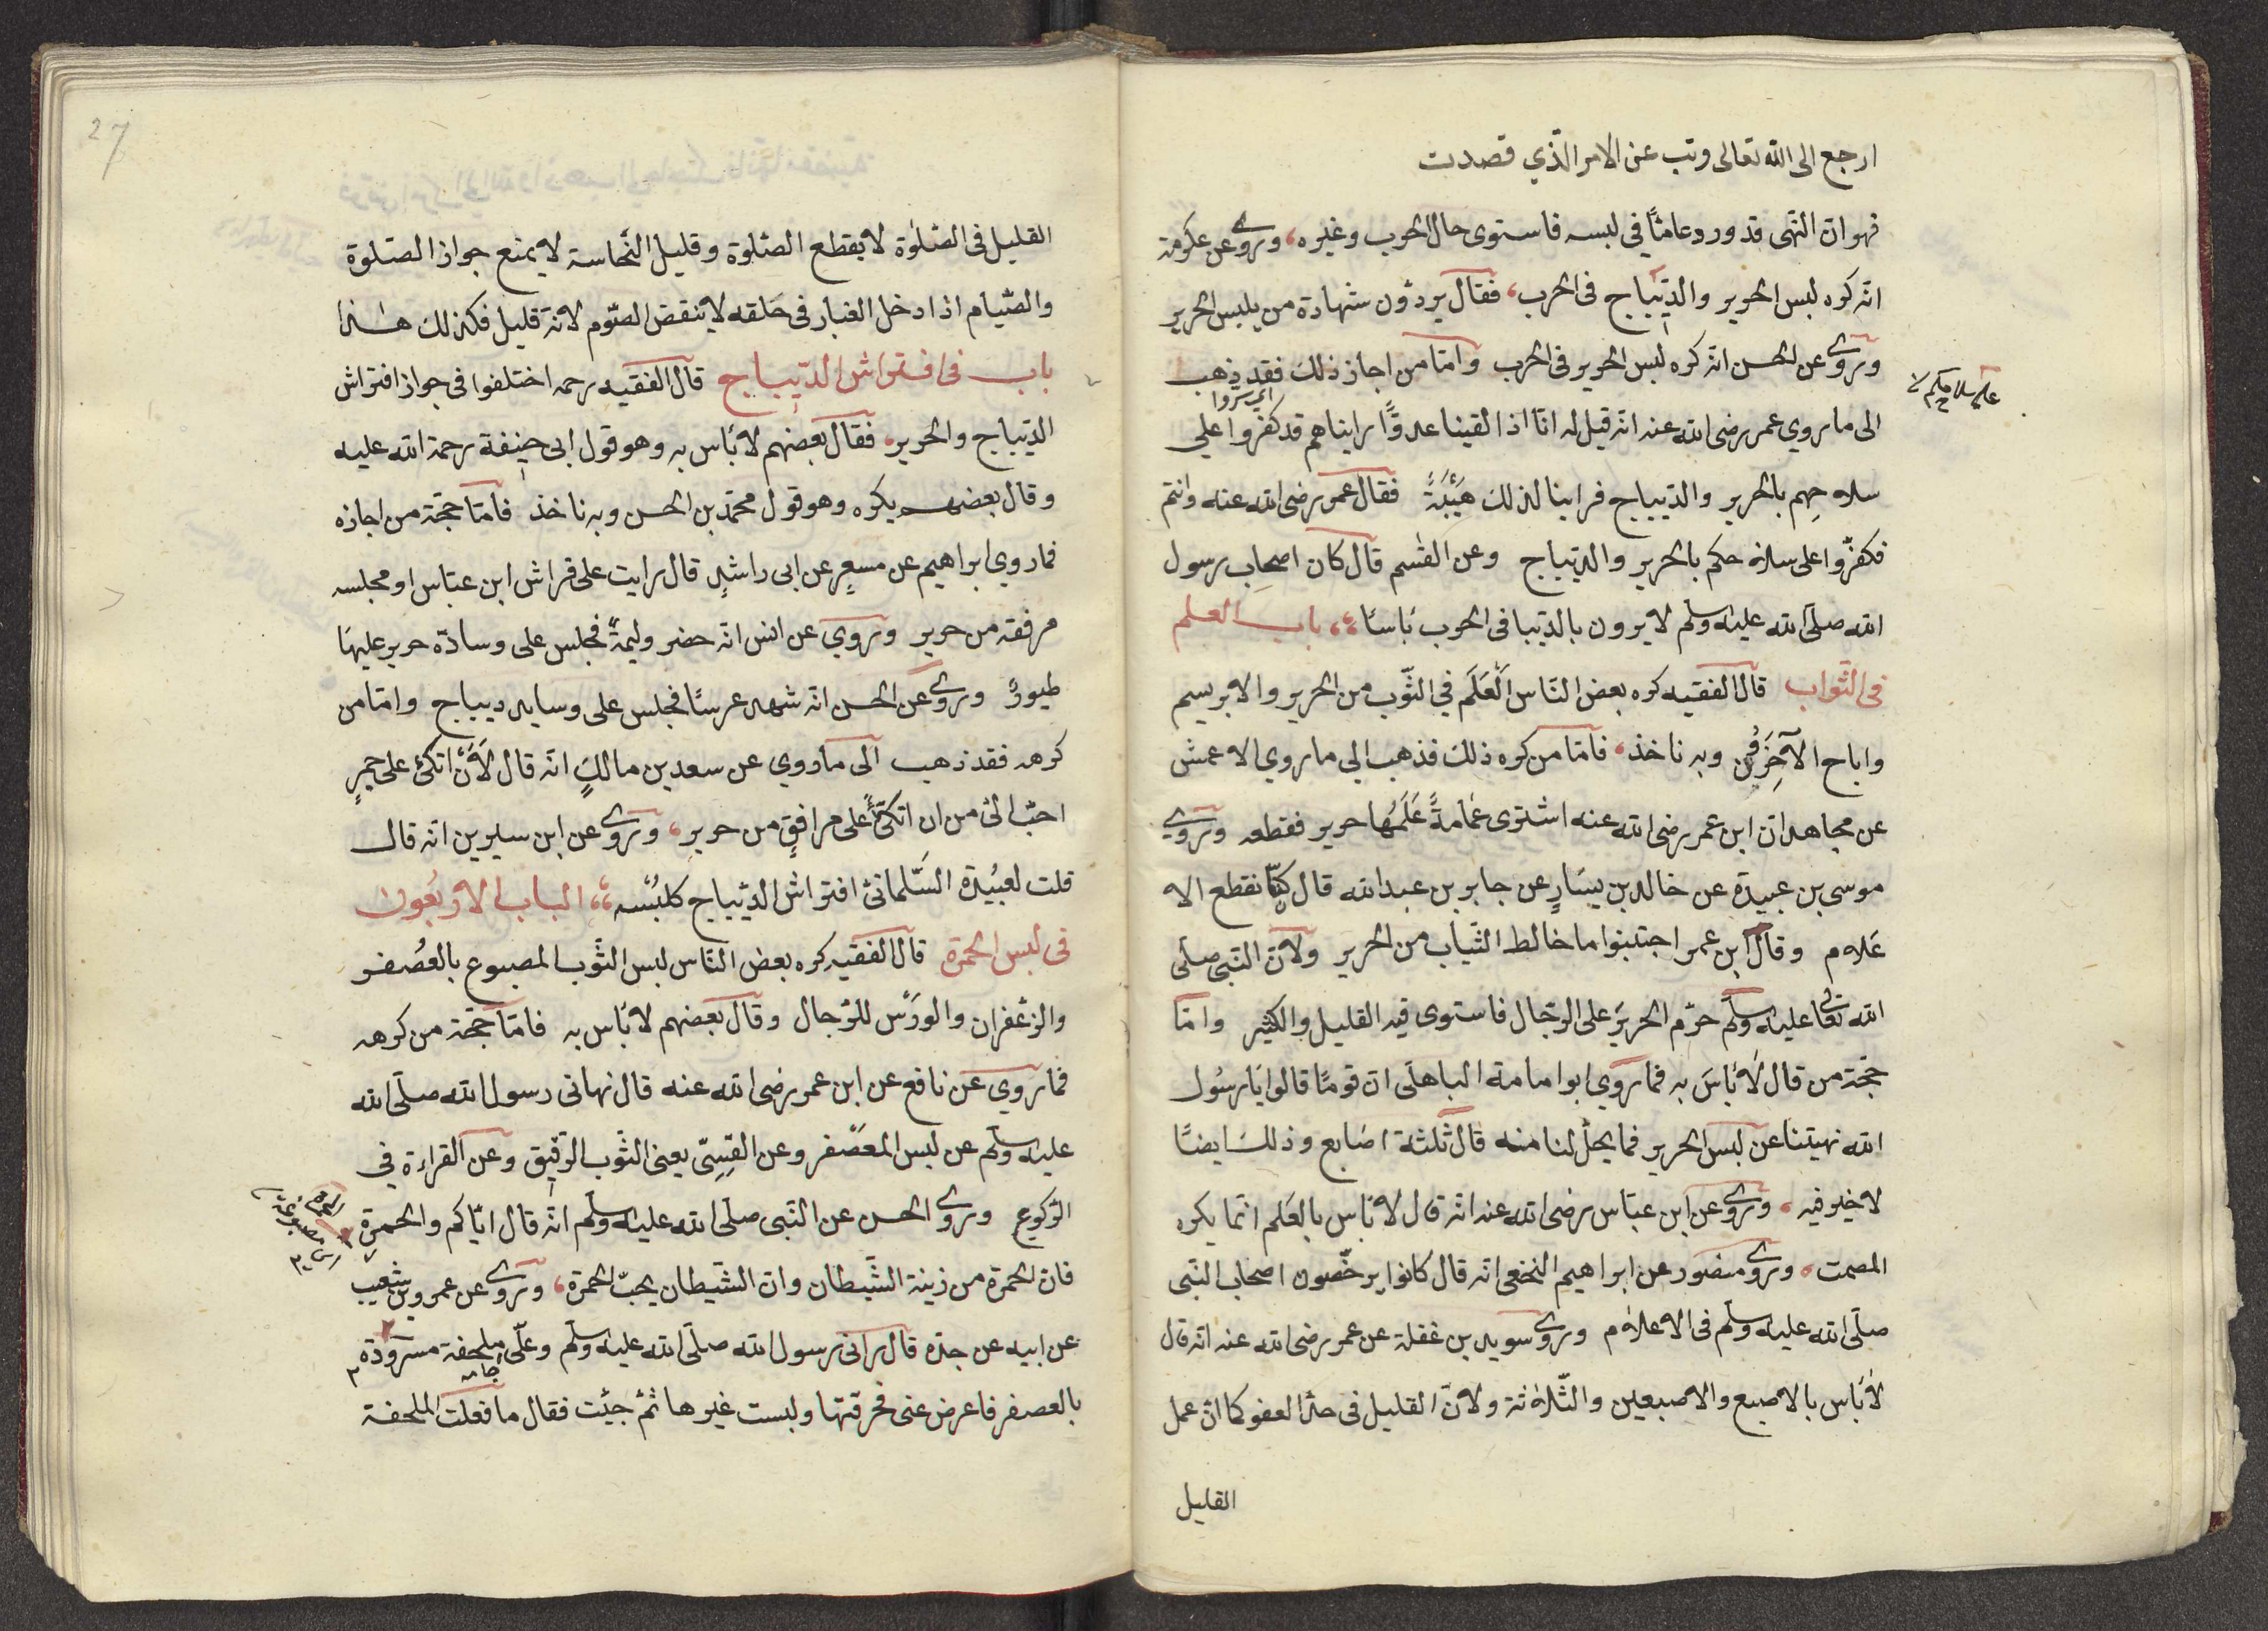 ارجع الى الله تعالى وتب عن الامر الذي قصدت
فهو ان النهى قد ورد عامّاً في لبسه فاستوى حال الحرب وغيره، وروى عن عكرمة
انّه كره لبس الحرير والدّيباج فى الحرب، فقال يردّون شهادة من يلبس الحرير
وروى عن الحسن انّه كره لبس الحرير فى الحرب وامّا من اجاز ذلك فقد ذهب
الى ما روي عمر رضى الله عنه انّه قيل له انّا اذا لقينا عدوًّا رايناهم قد كفروا على
اي ستروا
سلاحِهم بالحرير والدّيباج فراينا لذلك هَيْبَةً فقال عمر رضى الله عنه وانتم
فكفّروا على سلاحكم بالحرير والديباج وعن القسم قال كان اصحاب رسول
الله صلّى الله عليه وسلم لا يرون بالدّيبا فى الحرب بَاسًا، باب العلم
فى الثّواب قال الفقيه كره بعض النّاس الْعَلَم في الثّوب من الحرير والابريسم
واباح الآخِرُون وبه ناخذ، فامّا من كره ذلك فذهب الي ما روي الاعمش
عن مجاهد انّ ابن عمر رضى الله عنه اشترى عمامةً عَلَمُها حرير فقطعه وروي
موسى بن عبيدة عن خالد بن يسَارٍ عن جابر بن عبد الله قال كنّا نقطع الا
عَلام وقال ابن عمر اجتنبوا ما خالط الثياب من الحرير ولانّ النّبى صلّى
الله تعالى عليه وسلّم حرّم الحريرَ على الرّجال فاستوى فيه القليل والكثير وامّا
حجّة من قال لا بَاسَ به فما روي ابو امامة الباهلى انّ قومًا قالوا يَا رسُول
الله نهيتنا عن لبس الحرير فما يحلّ لنا منه قال ثلثة اصَابع وذلك ايضًا
لا خير فيه، وروى عن ابن عبّاس رضى الله عنه انّه قال لا باس بالعَلم انّما يكره
المصمت، وروى منصور عن ابراهيم النخعى انّه قال كانوا يرخّصون اصحاب النّبى
صلّى الله عليه وسلّم فى الاعلام وروى سويد بن غفلة عن عمر رضى الله عنه انّه قال
لا بَاس بالاصبع والاصبعين والثّلاثة ولانّ القليل فى حدّ العفو كما انّ عمل
القليل
27
القليل فى الصّلوٰة لا يقطع الصّلوة وقليل النّجاسة لا يمنع جواز الصّلوة
والصّيام اذا دخل الغبار فى حَلقه لا ينقض الصّوم لانّه قليل فكذلك هٰذا
باب فى افتراش الدّيباج قال الفقيه رحمه اختلفوا فى جواز افتراش
الدّيباج والحرير، فقال بعضهم لا بَاس به وهو قول ابى حنيفة رحمة الله عليه
وقال بعضهم يكره وهو قول محمّد بن الحسن وبه ناخذ فامّا حجّة من اجازه
فما روي ابراهيم عن مسعرٍ عن ابى راشدٍ قال رايت على فراش ابن عبّاس او مجلسه
مرفقه من حرير وروي عن انس انّه حضر وليمةً فجلس على وسادّه حرير عليهَا
طيورٌ وروى عن الحسن انّه شهد عرسًا فجلس على وسايد ديباج وامّا من
كرهه فقد ذهب الى ما روي عن سعد بن مالكٍ انّه قال لَاَنْ اتكئ على جمرٍ
احبّ الىّ من ان اتكئ على مرافقٍ من حرير، وروى عن ابن سيرين انّه قال
قلت لعبُيدة السَّلمانىّ افتراش الدّيباج كلبْسه،، الباب الاربعون
فى لبس الحمرة قال الفقيه كره بعض النّاس لبس الثّوب المصبوع بالعصُفر
والزّعفران والورَس للرّجال وقال بعضهم لا بَاس به فامّا حجّة من كرهه
فما روي عن نافع عن ابن عمر رضى الله عنه قال نهانى رسول الله صلّى الله
عليه وسلّم عن لبس المعَصْفر وعن القسِىّ يعنى الثّوب الرّقيق وعن القراءة في
الرّكوع وروى الحسن عن النّبى صلّى الله عليه وسلّم انّه قال ايّاكم والحمرة
فانّ الحمرة من زينة الشّيطان وانّ الشّيطان يحبّ الحمرة، وروى عن عمرو بن شعيب
عن ابيه عن جدّه قال رانى رسول الله صلّى الله عليه وسلّم وعلّى ملحفة مسرودة
بالعصفر فاعرض عنى فحرقتها ولبست غيرها ثمّ جيئت فقال ما فعلت الملحفة